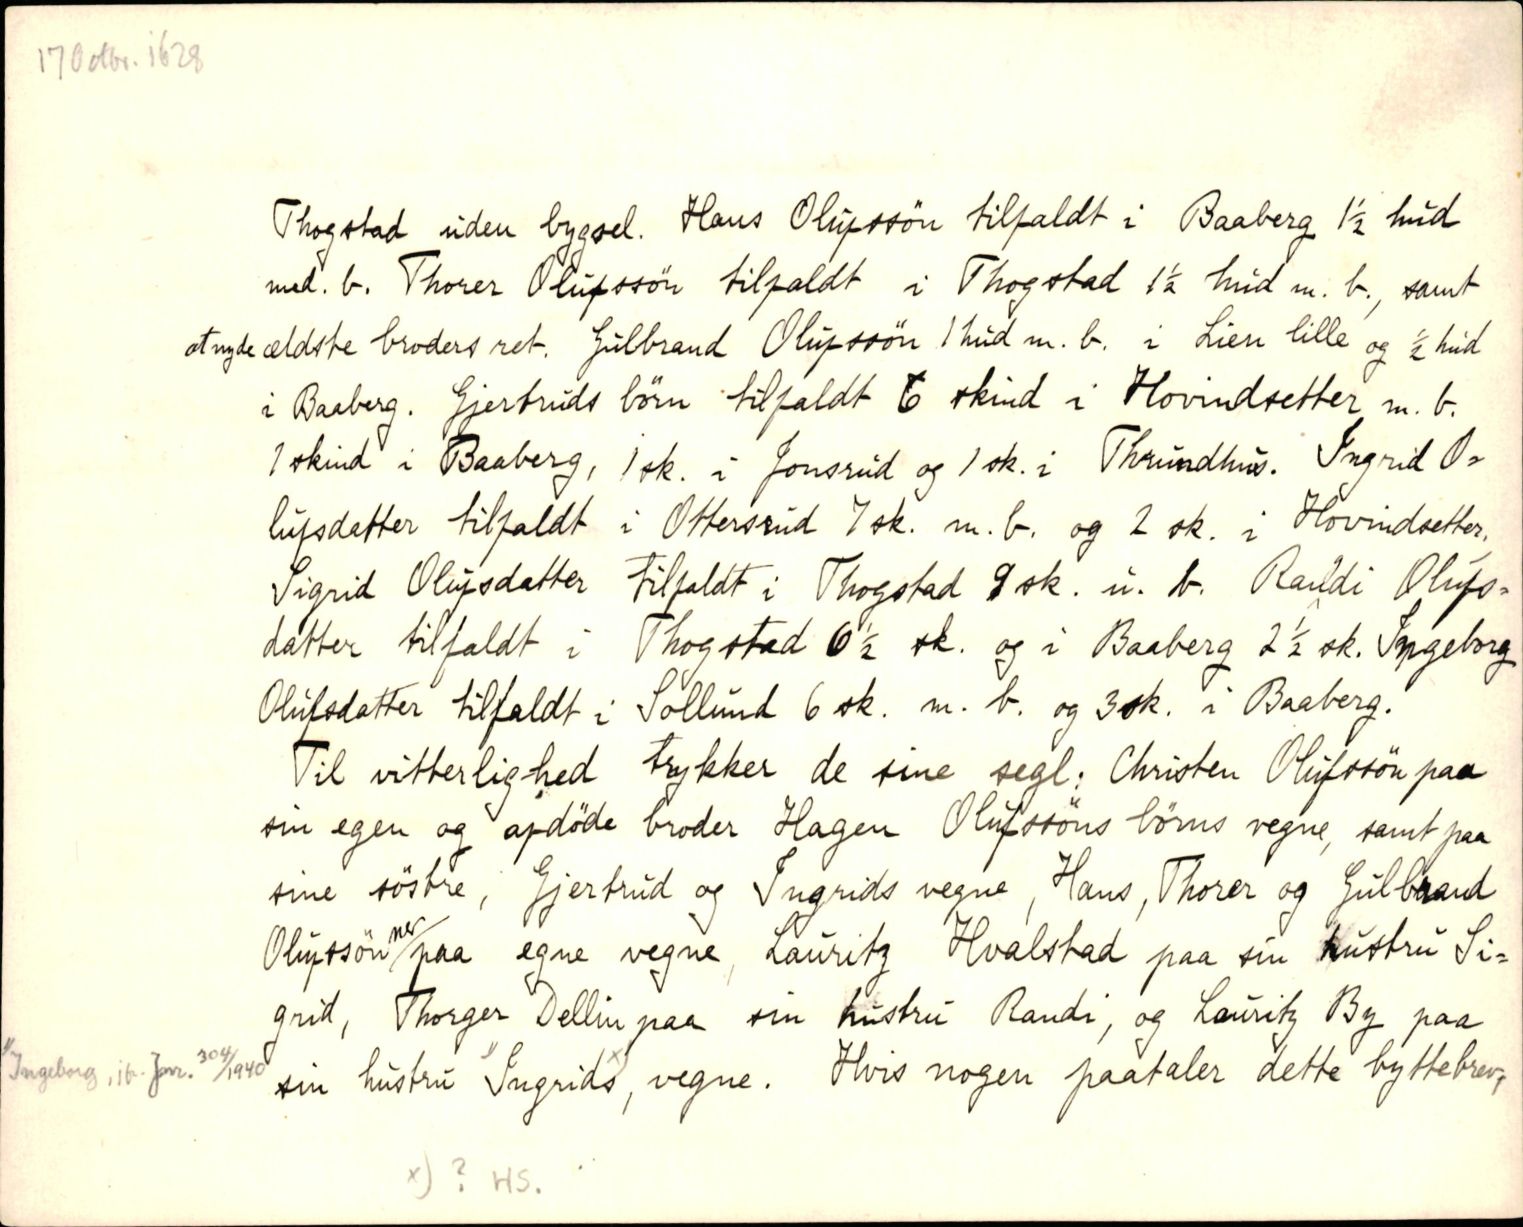 17 Octbr. 1628
Thogstad uden bygsel. Hans Olufssön tilfaldt i Baaberg 1½ hud
med. b. Thorer Olufssön tilfaldt i Thogstad 1½ hud m. b., samt
at nyde ældste broders ret. Gulbrand Olufssön 1 hud m. b. i Lien lille og ½ hud
i Baaberg. Gjertruds börn tilfaldt 6 skind i Hovindsetter m. b.
1 skind i Baaberg, 1 sk. i Jonsrud og 1 sk. i Thrundhus. Ingrid O=
lufsdatter tilfaldt i Ottersrud 7 sk. m. b. og 2 sk. i Hovindsetter.
Sigrid Olufsdatter tilfaldt i Thogstad 9 sk. u. b. Randi Olufs=
datter tilfaldt i Thogstad 6½ sk. og i Baaberg 2½ sk. Ingeborg
Olufsdatter tilfaldt i Sollund 6 sk. m. b. og 3 sk. i Baaberg.
Til vitterlighed trykker de sine segl: Christen Olufssön paa
sin egen og afdöde broder Hagen Olufssöns börns vegne, samt paa
sine söstre, Gjertrud og Ingrids vegne, Hans, Thorer og Gulbrand
Olufssönner paa egne vegne, Lauritz Hvalstad paa sin hustru Si=
grid, Thorger Dellin paa sin hustru Randi, og Lauritz By paa
sin hustru "Ingrids x), vegne. Hvis nogen paataler dette byttebrev,
"Ingeborg, if. Jnr. 304/1940
x) ? HS.